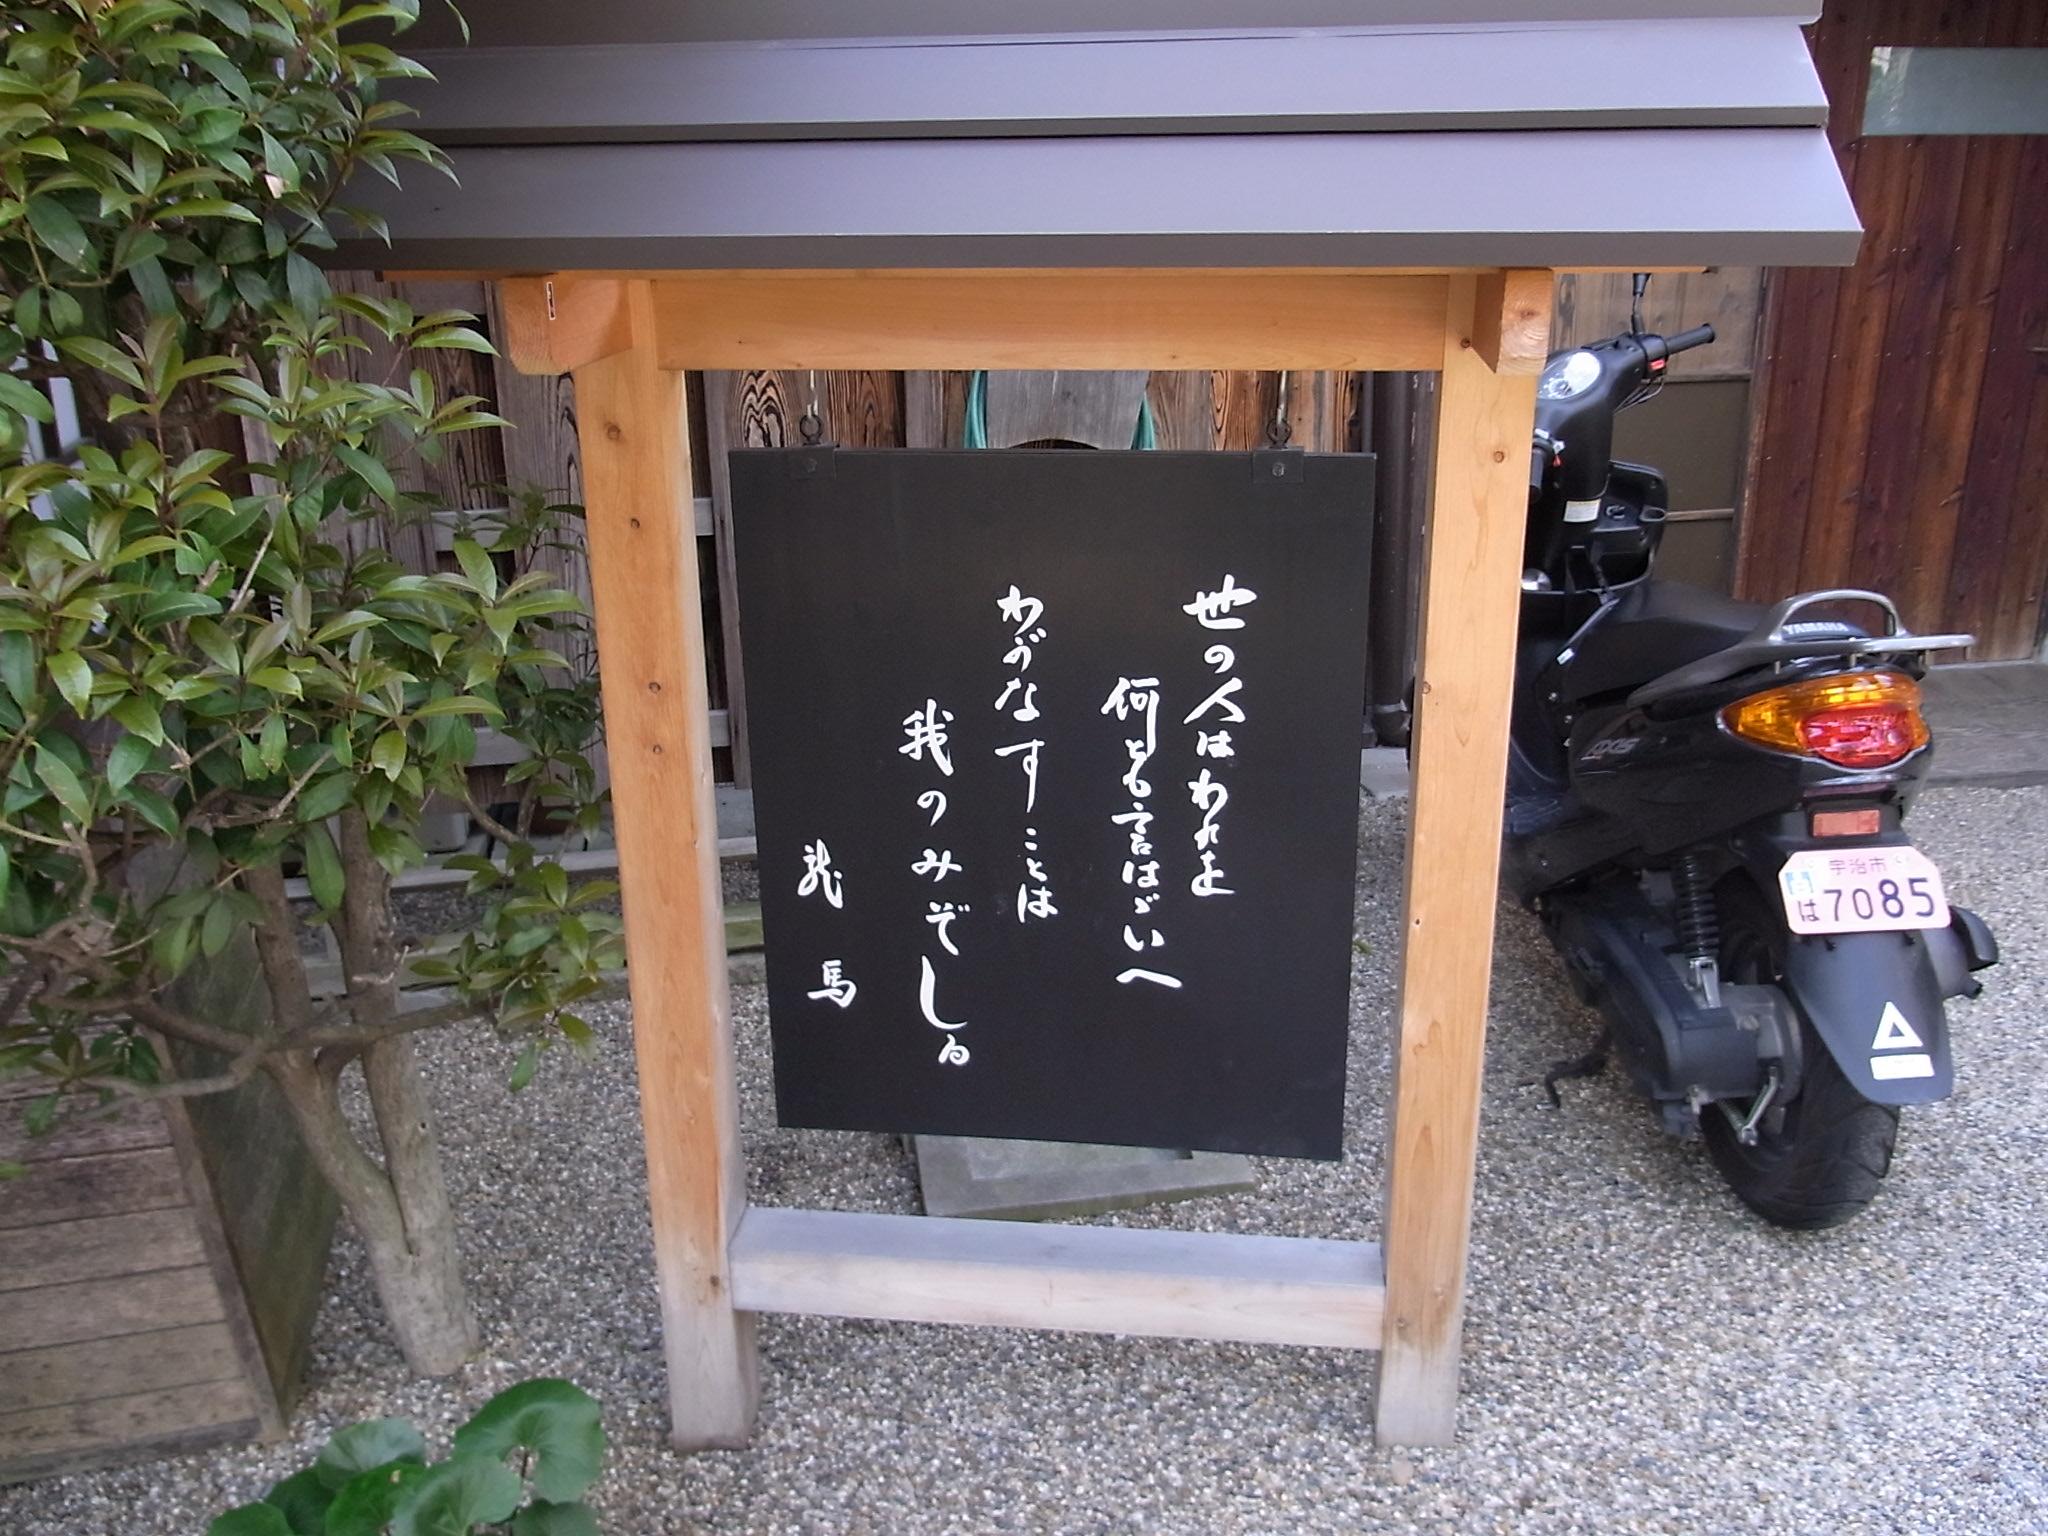 世の人はわれを
何とも言はゞいへ
わがなすことは
我のみぞしる
龍馬
YAMAHA
宇治市
は 7085